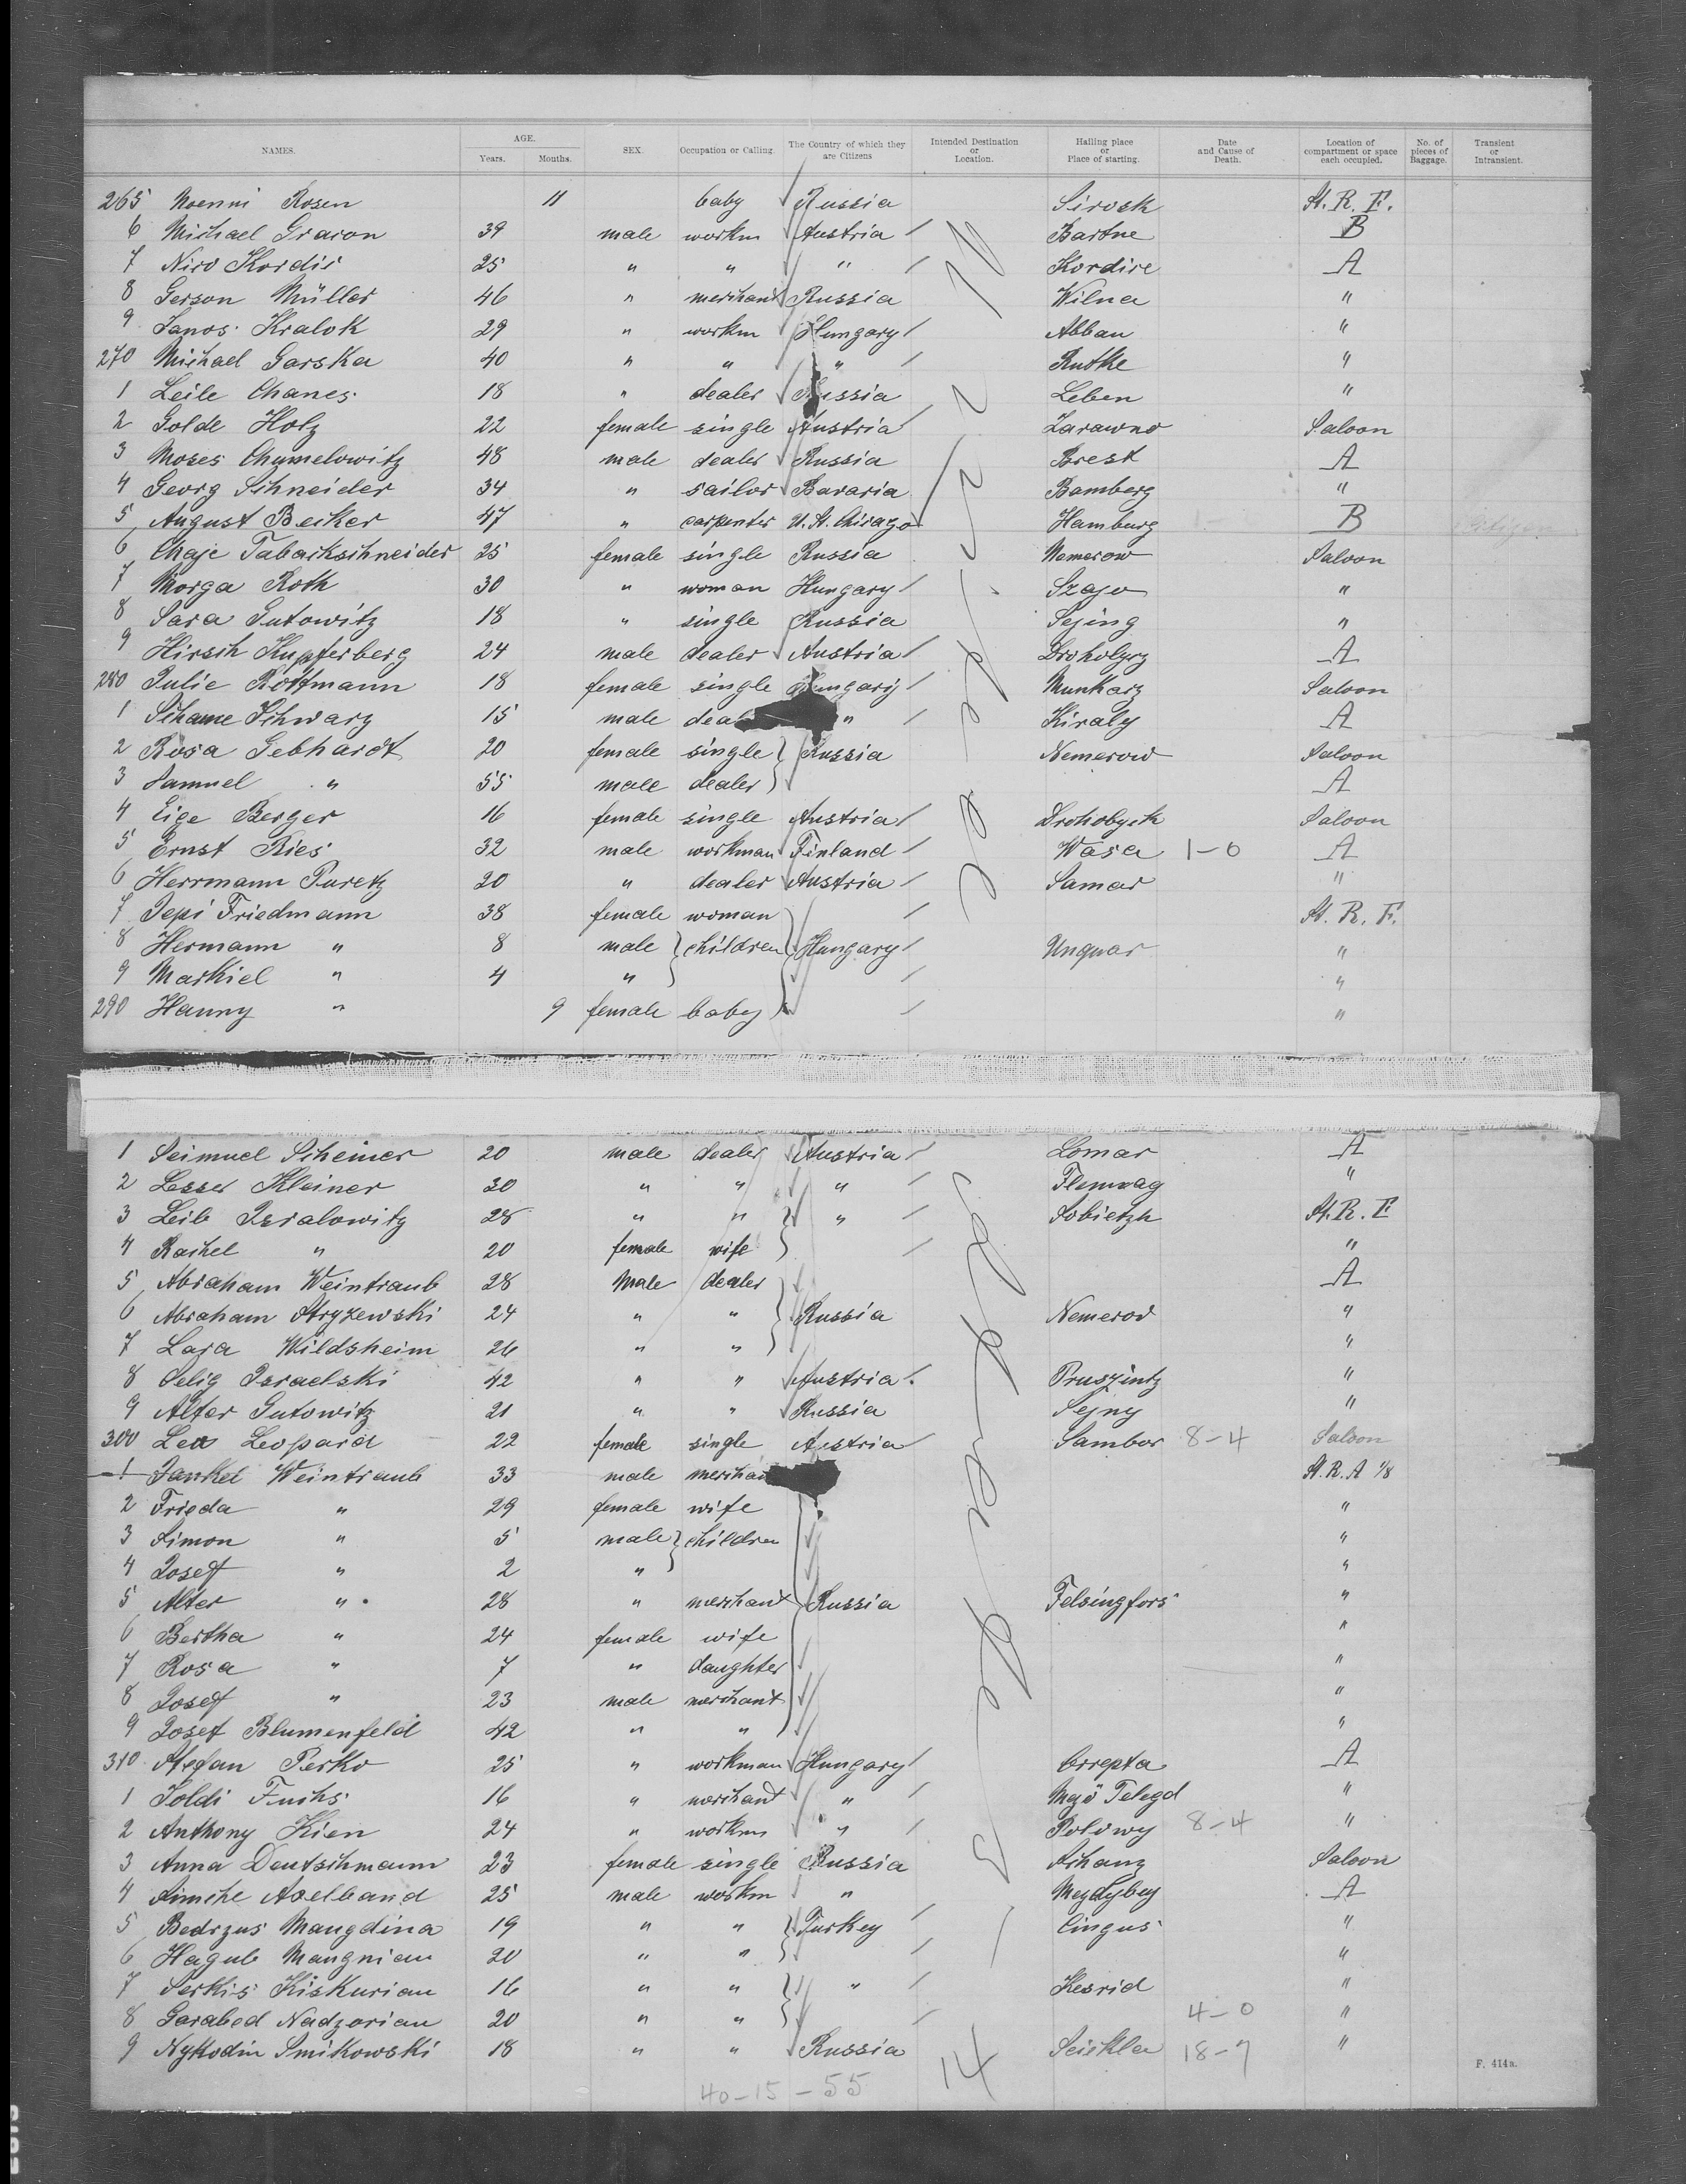 NAMES. AGE. Years. Months. SEX. Occupation or Calling. The Country of which they are Citizens Intended Destination or Location. Hailing place or Place of starting. Date and Cause of Death. Location of compartment or space each occupied. No. of pieces of Baggage. Transient or Intransient.
265 Rosen 11 baby Russia Sirosk St. R. F.
6 Michael Gracon 39 male workm Austria Bartne B
7 Kordis 25 " " " Kordice A
8 Gerson Müller 46 " merchant Russia Wilna "
9 Janos Kralok 29 " workm Hungary Abban "
270 Michael Garska 40 " " " Rutke "
1 Leile Chanes 18 " dealer Russia Leben "
2 Golde Holz 22 female single Austria Zarawno Saloon
3 Moses Chumelowitz 48 male dealer Russia Brest A
4 Georg Schneider 34 " sailor Bavaria Bamberg "
5 August Becker 47 " carpenter U. St. Chicago Hamburg B
6 Chaje Tabackschneider 25 female single Russia Nemerow Saloon
7 Morga Roth 30 " woman Hungary Szajo "
8 Sara Gutowitz 18 " single Russia Sejing "
9 Hirsch Kupferberg 24 male dealer Austria Droholyrz A
280 Julie Rottmann 18 female single Hungary Munkarz Saloon
1 Schame Schwarz 15 male " Kiraly A
2 Rosa Gebhardt 20 female single Russia Nemerow Saloon
3 Samuel " 55 male dealer A
4 Eige Berger 16 female single Austria Drohobych Saloon
5 Ernst Ries 32 male workman Finland Wasa 1-0 A
6 Herrmann Puretz 20 " dealer Austria Samar "
7 Pepi Friedmann 38 female woman St. R. F.
8 Hermann " 8 male children Hungary Unguar "
9 Markiel " 4 " "
290 Hanny " 9 female baby "
1 Seimuel Scheiner 20 male dealer Austria Lomar A
2 Lesser Kleiner 30 " " " "
3 Leib Isralowitz 28 " " " Sobietzh St. R. F
4 Rachel " 20 female wife "
5 Abraham Weintraub 28 Male dealer A
6 Abraham Stryzewski 24 " " Russia Nemerov "
7 Laja Wildsheim 26 " " "
8 Selig Israelski 42 " " Austria Pruszintz "
9 Alter Gutowitz 21 " " Russia Sejny "
300 Lea Leopard 22 female single Austria Sambor 8-4 Saloon
1 Jankel Weintraub 33 male St. R. A 1/8
2 Frieda " 29 female wife "
3 Simon " 5 male children "
4 Josef " 2 " "
5 Alter " 28 " merchant Russia Felsingfors "
6 Bertha " 24 female wife "
7 Rosa " 7 " daughter "
8 Josef " 23 male merchant "
9 Josef Blumenfeld 42 " " "
310 Stefan Perko 25 " workman Hungary Orrepta A
1 Poldi Fuchs 16 " merchant " Mezö Telegd "
2 Anthony Kien 24 " workm " Polowy 8-4 "
3 Anna Deutschmann 23 female single Russia Schanz Saloon
4 Simche Axelband 25 male workm " Mezdybey A
5 Bedrzus Mangdina 19 " " Turkey Cingus "
6 Hagub Mangnian 20 " " "
7 Serkis Kiskurian 16 " " " Kesrid "
8 Garabed Nadzorian 20 " " 4-0 "
9 Nykodin Smikowski 18 " " Russia 18-7 "
40-15-55 14
F. 414a.